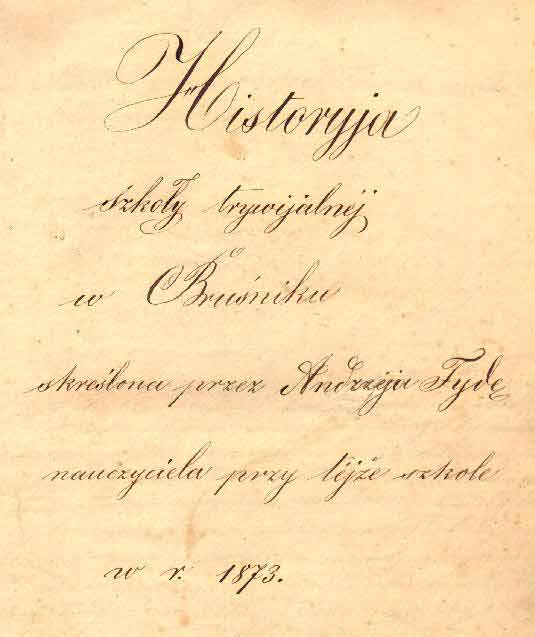 Historyja
szkoły trywijalnéj
w Bruśniku
skreślona przez Andrzéja Tydę
nauczyciela przy téjże szkole
w r. 1873.